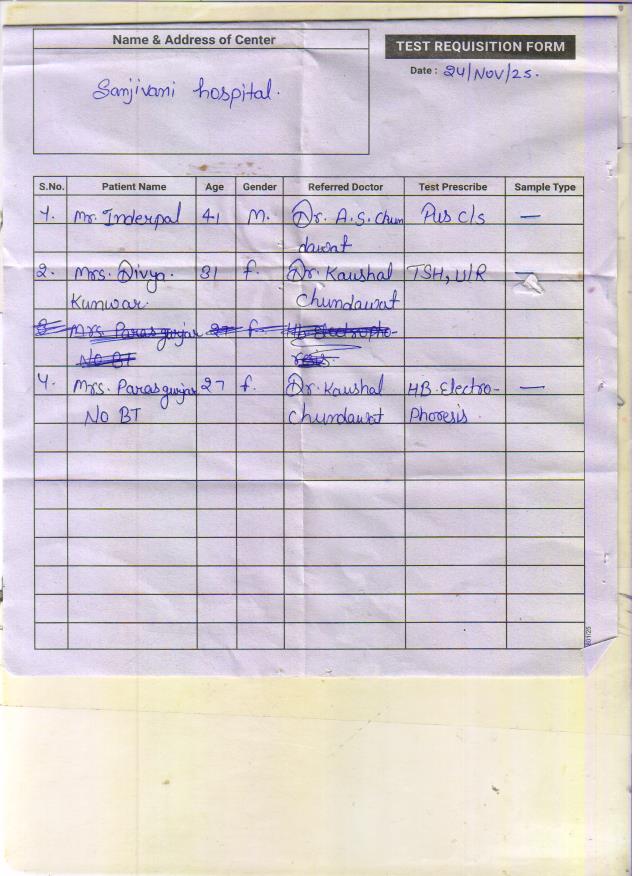 Name & Address of Center
TEST REQUISITION FORM
Date : 24/Nov/25.
Sanjivani hospital.
S.No. Patient Name Age Gender Referred Doctor Test Prescribe Sample Type
1. Mr. Inderpal 41 M. Dr. A.S. Chun Pus C/S —
dawat
2. Mrs. Divya. 31 f. Dr. Kaushal TSH, U/R —
Kunwar. Chundawat
3 Mrs. Paras gurjar 27 f. HB Electropho-
NO BT resis.
4. Mrs. Paras gurjar 27 f. Dr. Kaushal HB. Electro- —
NO BT Chundawat Phoresis